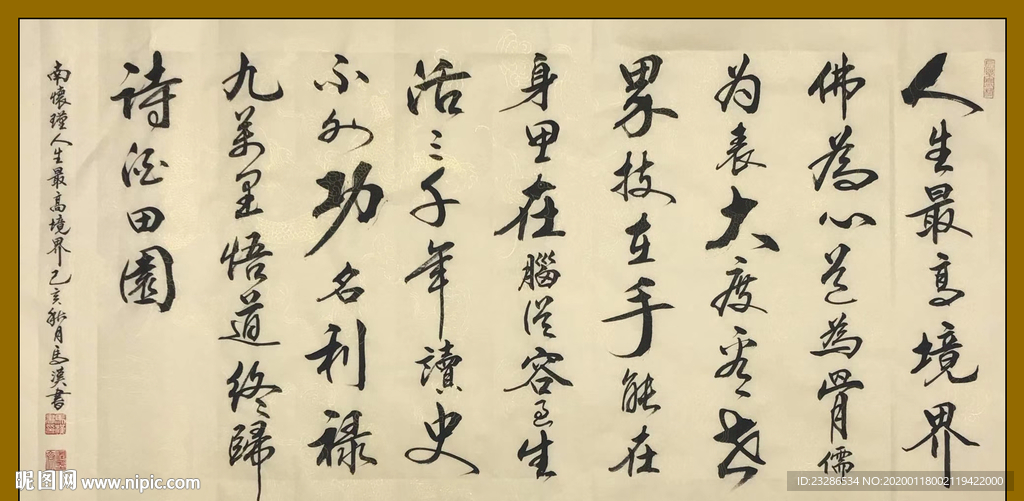 人生最高境界
佛為心道為骨儒
为表大度看世
界技在手能在
身思在腦從容過生
活三千年讀史
不外功名利禄
九萬里悟道終歸
詩酒田園
南懷瑾人生最高境界己亥 月馬漢書
昵图网 www.nipic.com
ID:23286534 NO:20200118002119422000